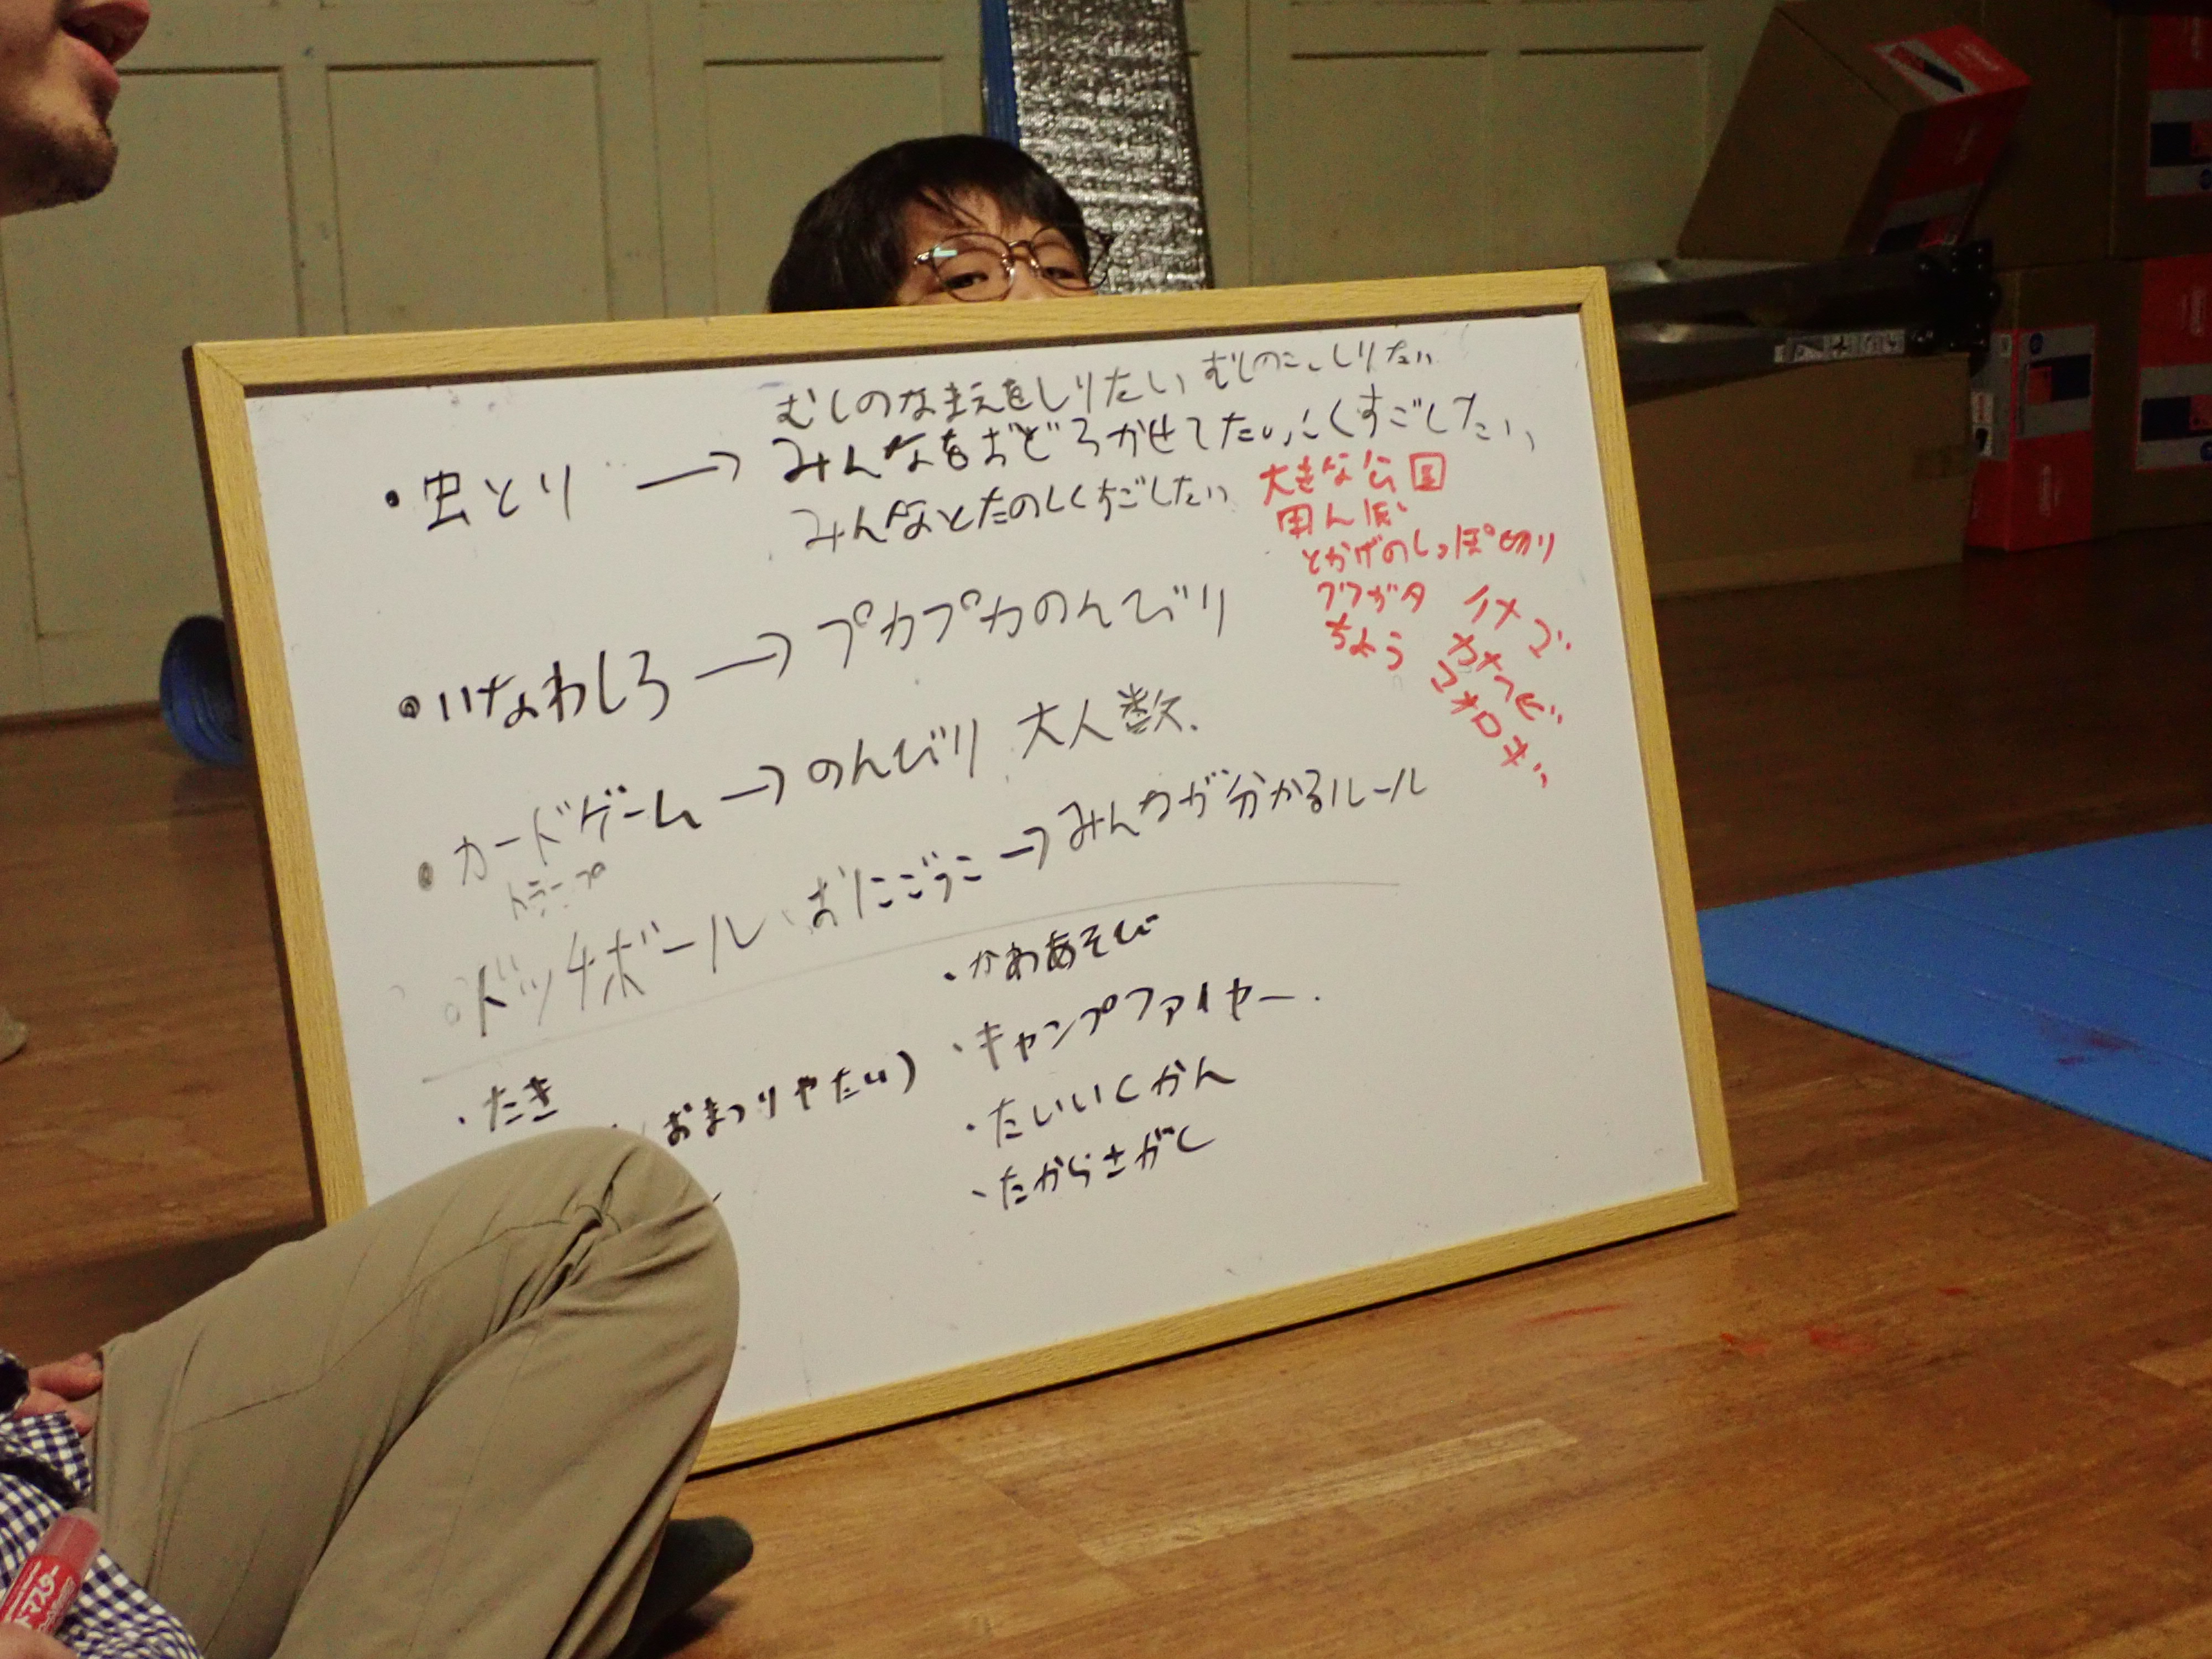 むしのなまえをしりたい むしのこ、しりたい
・虫とり → みんなをおどろかせてたい
くすごしたい、
みんなとたのしくすごしたい
大きな公園
田んぼ
とかげのしっぽ切り
クワガタ イナゴ
ちょう
コオロギ
・いなわしろ → プカプカのんびり
・カードゲーム → のんびり 大人数.
トランプ
ドッチボール、おにごっこ → みんなが分かるルール
・たき
おまつりやたい)
・かわあそび
・キャンプファイヤー.
・たいいくかん
・たからさがし